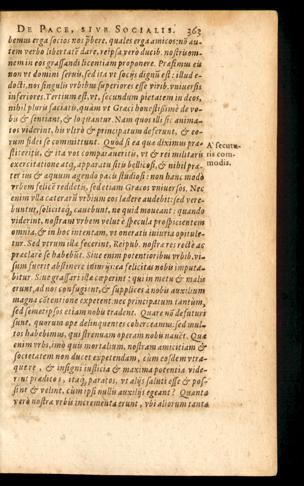 DE PACE, SIVE SOCIALIS. 363
bemus erga socios nos præbere, quales erga amicos: nō au-
tem verbo libertatē dare, reipsa verò ducib. nostris om-
nem in eos grassandi licentiam proponere. Præsimus eis
non vt domini seruis, sed ita vt socijs dignū est: illud e-
docti, nos singulis vrbibus superiores esse viribꝰ, vniuersis
inferiores. Tertium est, vt, secundum pietatem in deos,
nihil pluris faciatis, quàm vt Græci honestissimè de vo-
bis & sentiant, & loquantur. Nam quos illi sic anima-
tos viderint, his vltrò & principatum deferunt, & eo-
rum fidei se committunt. Quòd si ea quæ diximus præ-
stiteritis, & ita vos comparaueritis, vt & rei militaris
exercitatione atq, apparatu sitis bellicosi, & nihil præ-
ter ius & æquum agendo pacis studiosi: non hanc modò
vrbem felicē reddetis, sed etiam Græcos vniuersos. Nec
enim vlla cæterarū vrbium eos lædere audebit: sed vere-
buntur, solicitoq́, cauebunt, ne quid moueant: quando
viderint, nostram vrbem velut è specula prospicientem
omnia, & in hoc intentam, vt oneratis iniuria opitule-
tur. Sed vtrum illa fecerint, Reipub. nostræ res rectè ac
præclarè se habebūt. Siue enim potentioribus vrbib. vi-
sum fuerit abstinere iniurijs: ea felicitas nobis imputa-
bitur. Siue grassari ista cœperint: qui in metu & malis
erunt, ad nos confugient, & supplices à nobis auxilium
magna cōtentione expetent: nec principatum tantùm,
sed semetipsos etiam nobis tradent. Quare nō defuturi
sunt, quorum ope delinquentes coherceamus: sed mul-
tos habebimus, qui strenuam operam nobis nauēt. Quæ
enim vrbs, imò quis mortalium, nostram amicitiam &
societatem non ducet expetendam, cùm eosdem vtra-
que re, & insigni iusticia & maxima potentia vide-
rint præditos, itaq́, paratos, vt alijs saluti esse & pos-
sint & velint, cùm ipsi nullis auxilijs egeant? Quanta
verò nostræ vrbis incrementa erunt, vbi aliorum tanta
A' secutu-
ris com-
modis.